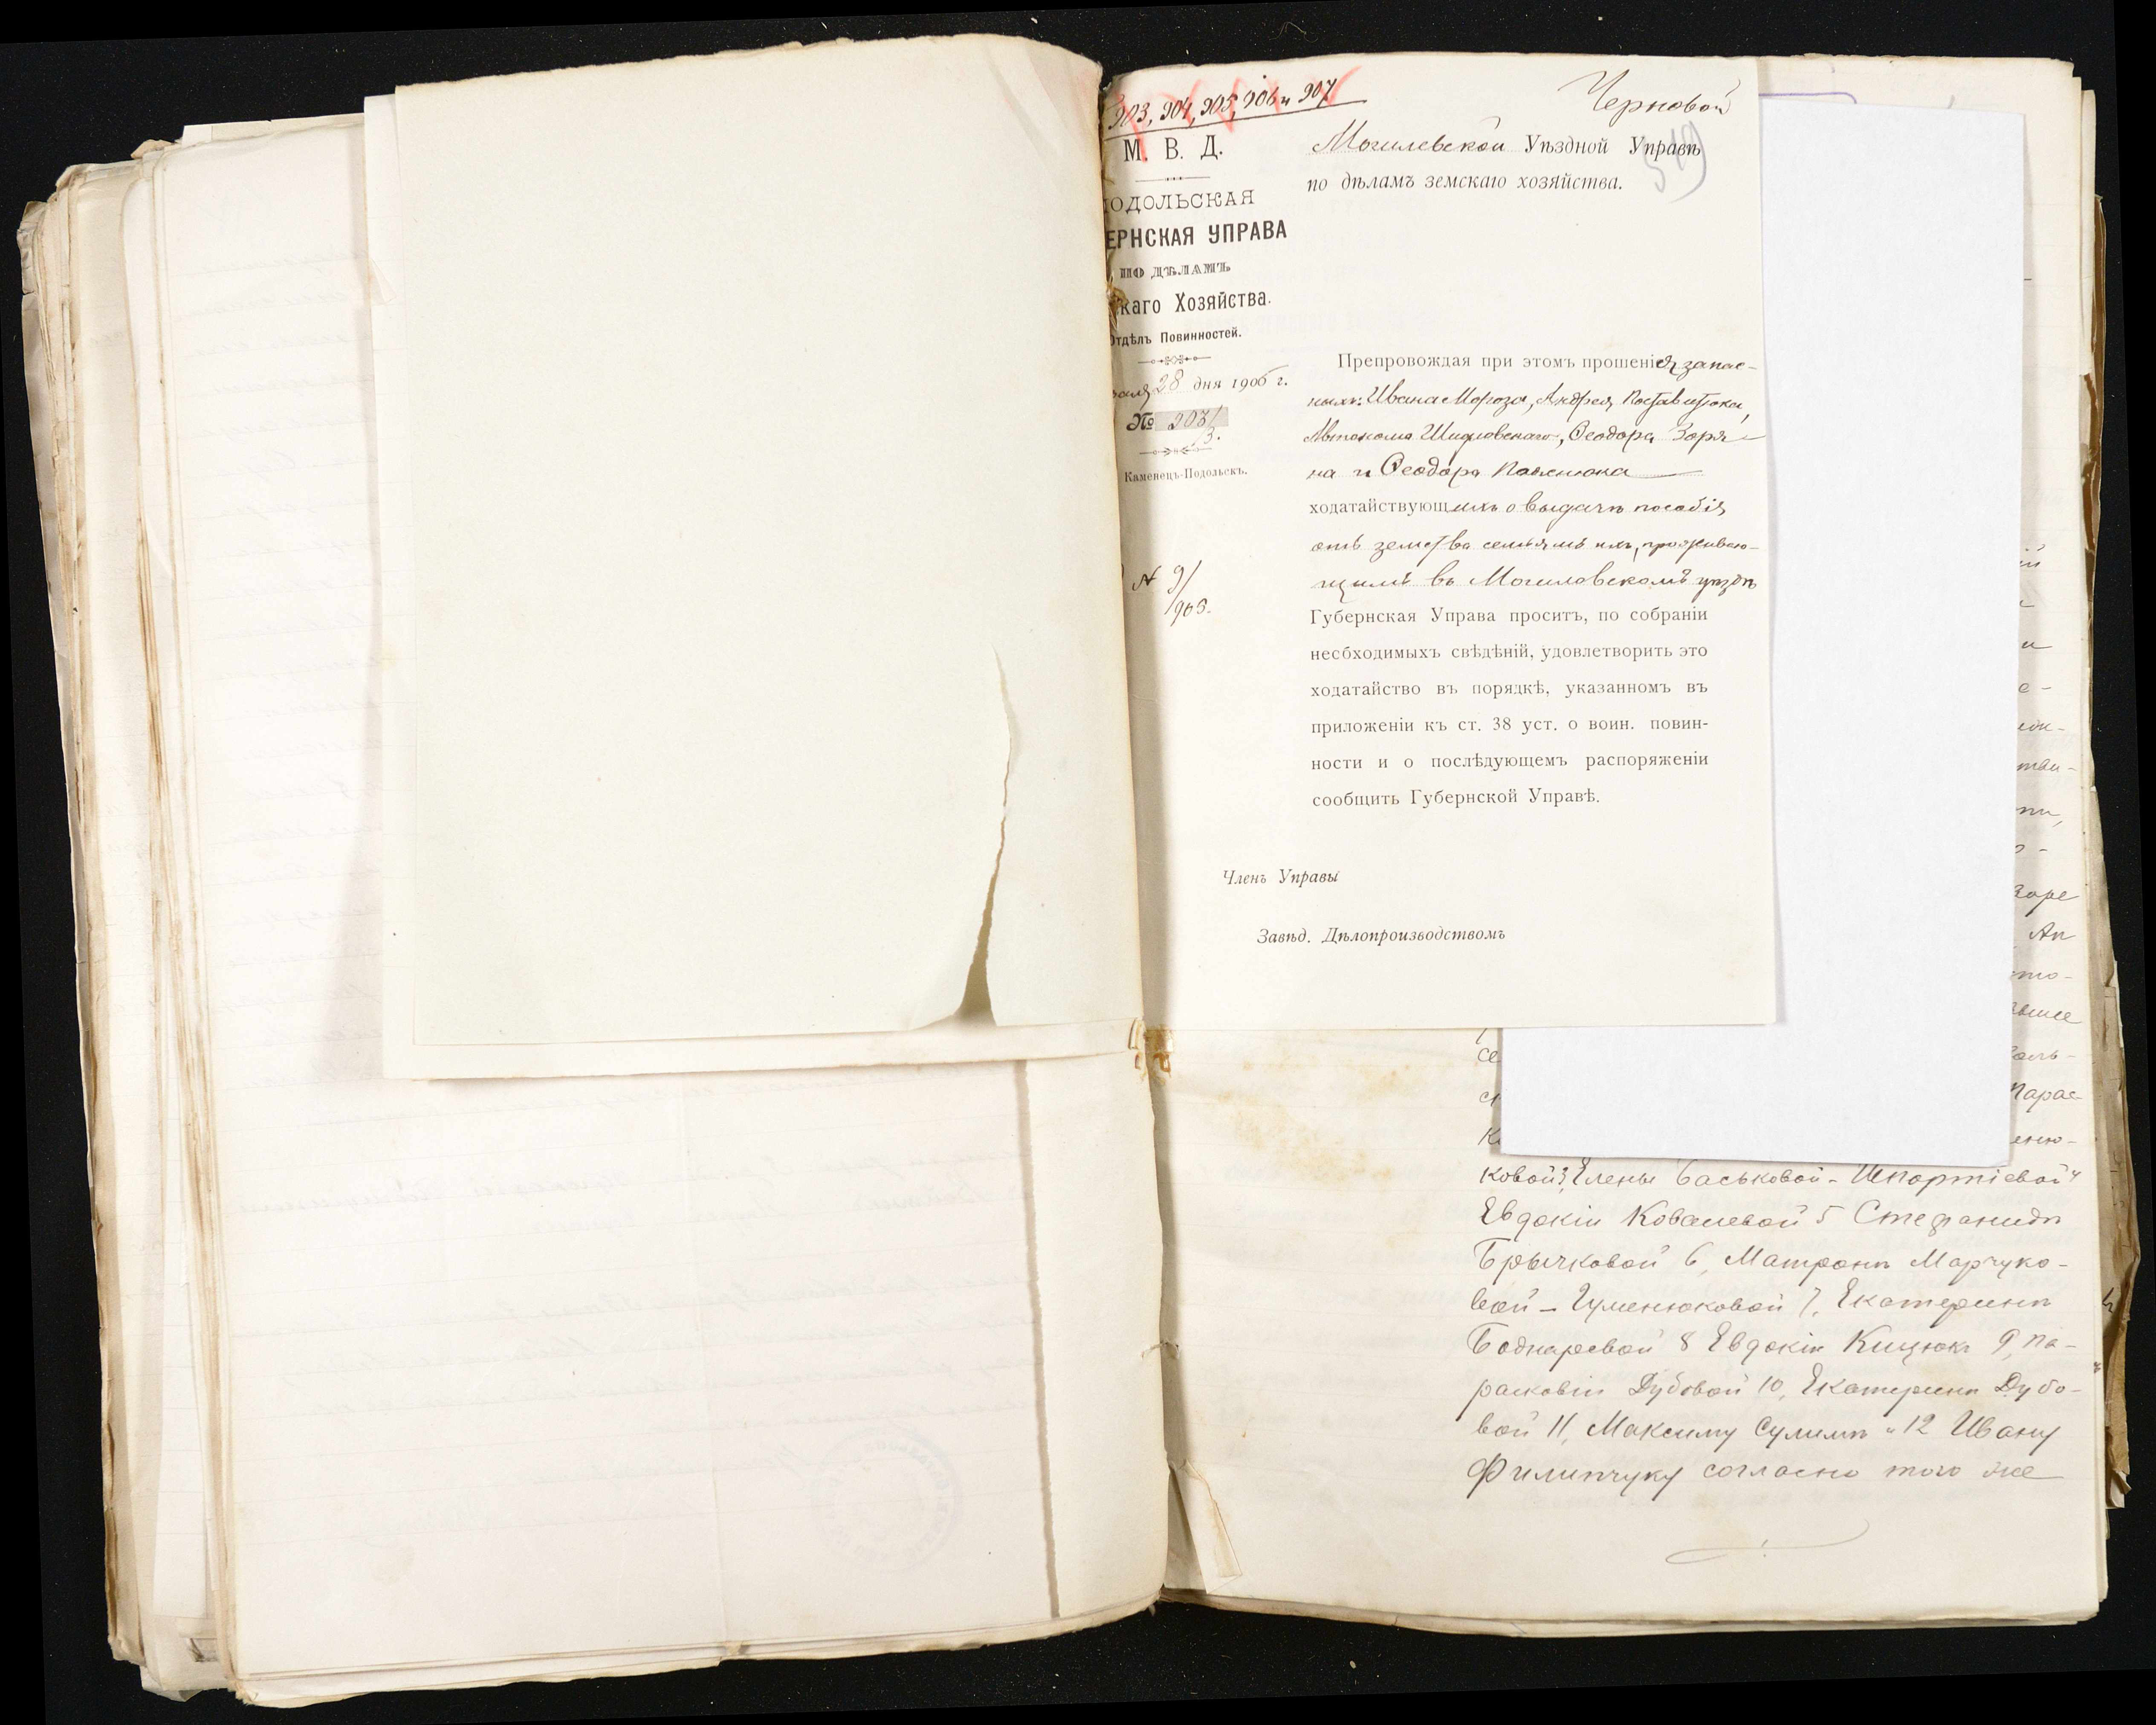 903, 904, 905, 906 и 907
Черновой
М. В. Д.
ПОДОЛЬСКАЯ
ЕРНСКАЯ УПРАВА
ПО ДѢЛАМЪ
каго Хозяйства.
Отдѣлъ Повинностей.
28 дня 1906 г.
№
Каменецъ-Подольскъ.
№ 9/
Могилевской Уѣздной Управѣ
по дѣламъ земскаго хозяйства.
Препровождая при этомъ прошенія запас-
ныхъ: Ивана Мороза, Андрея
Автонома Шидловскаго, Ѳеодора Заря-
на и Ѳеодора Павлюка
ходатайствующихъ о выдачѣ пособія
отъ земства семьямъ ихъ, проживаю-
щимъ въ Могилевскомъ уѣздѣ
Губернская Управа проситъ, по собраніи
несбходимыхъ свѣдѣній, удовлетворить это
ходатайство въ порядкѣ, указанномъ въ
приложеніи къ ст. 38 уст. о воин. повин-
ности и о послѣдующемъ распоряженіи
сообщить Губернской Управѣ.
Членъ Управы
Завѣд. Дѣлопроизводствомъ
ковой 3, Елены Баськовой - Шпортіевой 4
Евдокіи Ковалевой 5 Стефанидѣ
Брычковой 6, Матронѣ Марчуко-
вой - Гуменюковой 7, Екатеринѣ
Боднаревой 8 Евдокіи Кицюкъ 9, Па-
расковіи Дубовой 10, Екатеринѣ Дубо-
вой 11, Максиму Сулимѣ и 12 Ивану
Филипчуку согласно того же